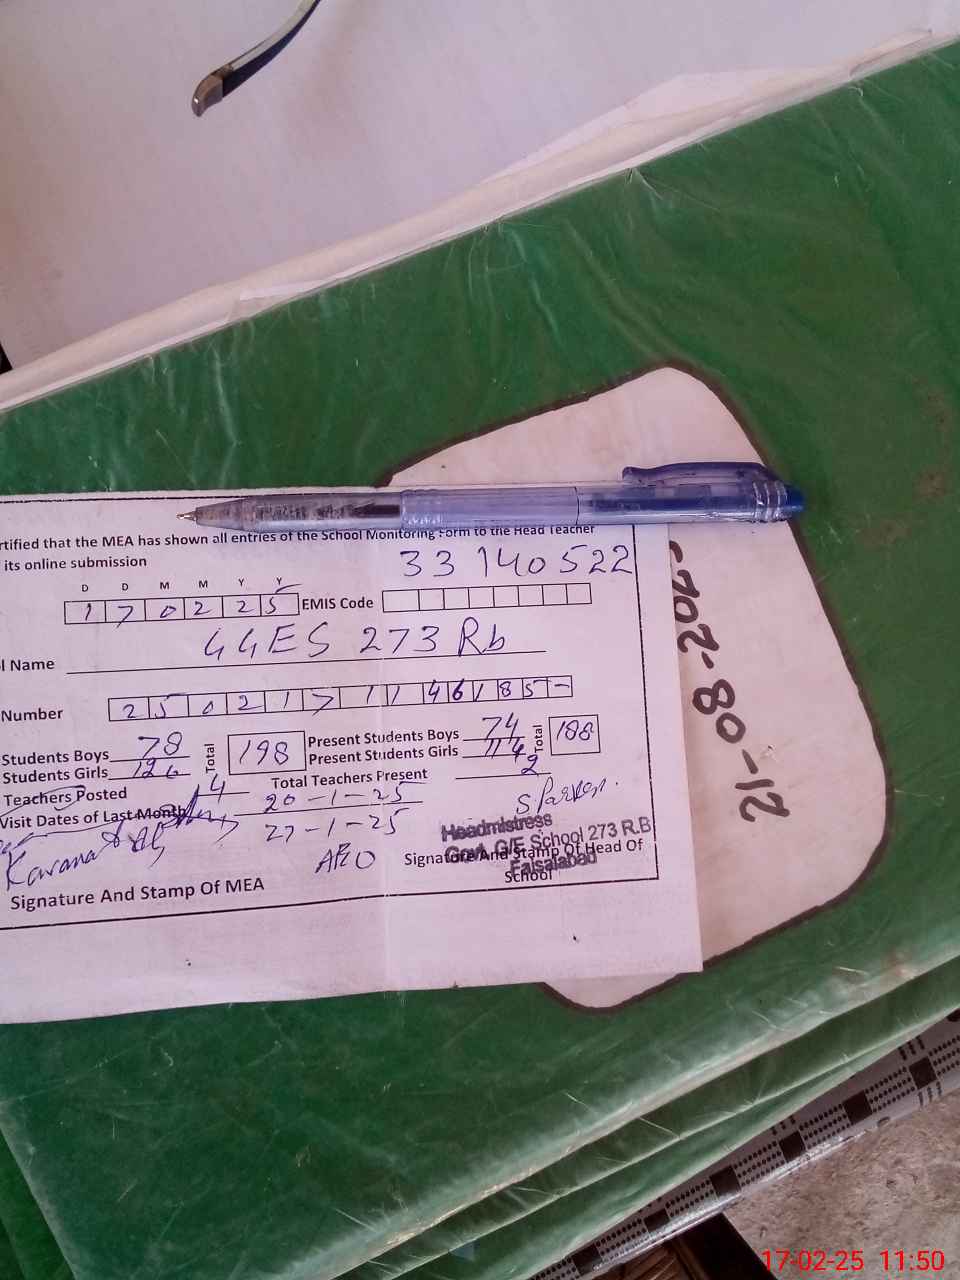 rtified that the MEA has shown all entries of the School Monitoring Form to the Head Teacher
its online submission
33140522
D D M M Y Y
1 7 0 2 2 5 EMIS Code
l Name GGES 273 Rb
Number 2 5 0 2 1 7 1 1 4 6 1 8 5 -
Students Boys 78 Total 198 Present Students Boys 74 Total 188
Students Girls 120 Present Students Girls 114
Teachers Posted 4 Total Teachers Present 2
Visit Dates of Last Month 20-1-25
27-1-25
S. Parveen.
Headmistress
Govt. G/E School 273 R.B
Faisalabad
AEO
Signature And Stamp Of Head Of
School
Signature And Stamp Of MEA
21-08-202
17-02-25 11:50